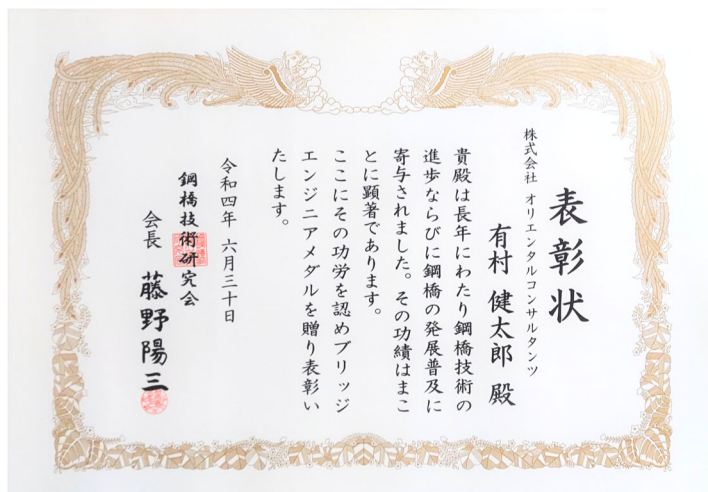 表彰状
株式会社 オリエンタルコンサルタンツ
有村 健太郎 殿
貴殿は長年にわたり鋼橋技術の
進歩ならびに鋼橋の発展普及に
寄与されました。その功績はまこ
とに顕著であります。
ここにその功労を認めブリッジ
エンジニアメダルを贈り表彰い
たします。
令和四年 六月三十日
鋼橋技術研究会
会長 藤野陽三